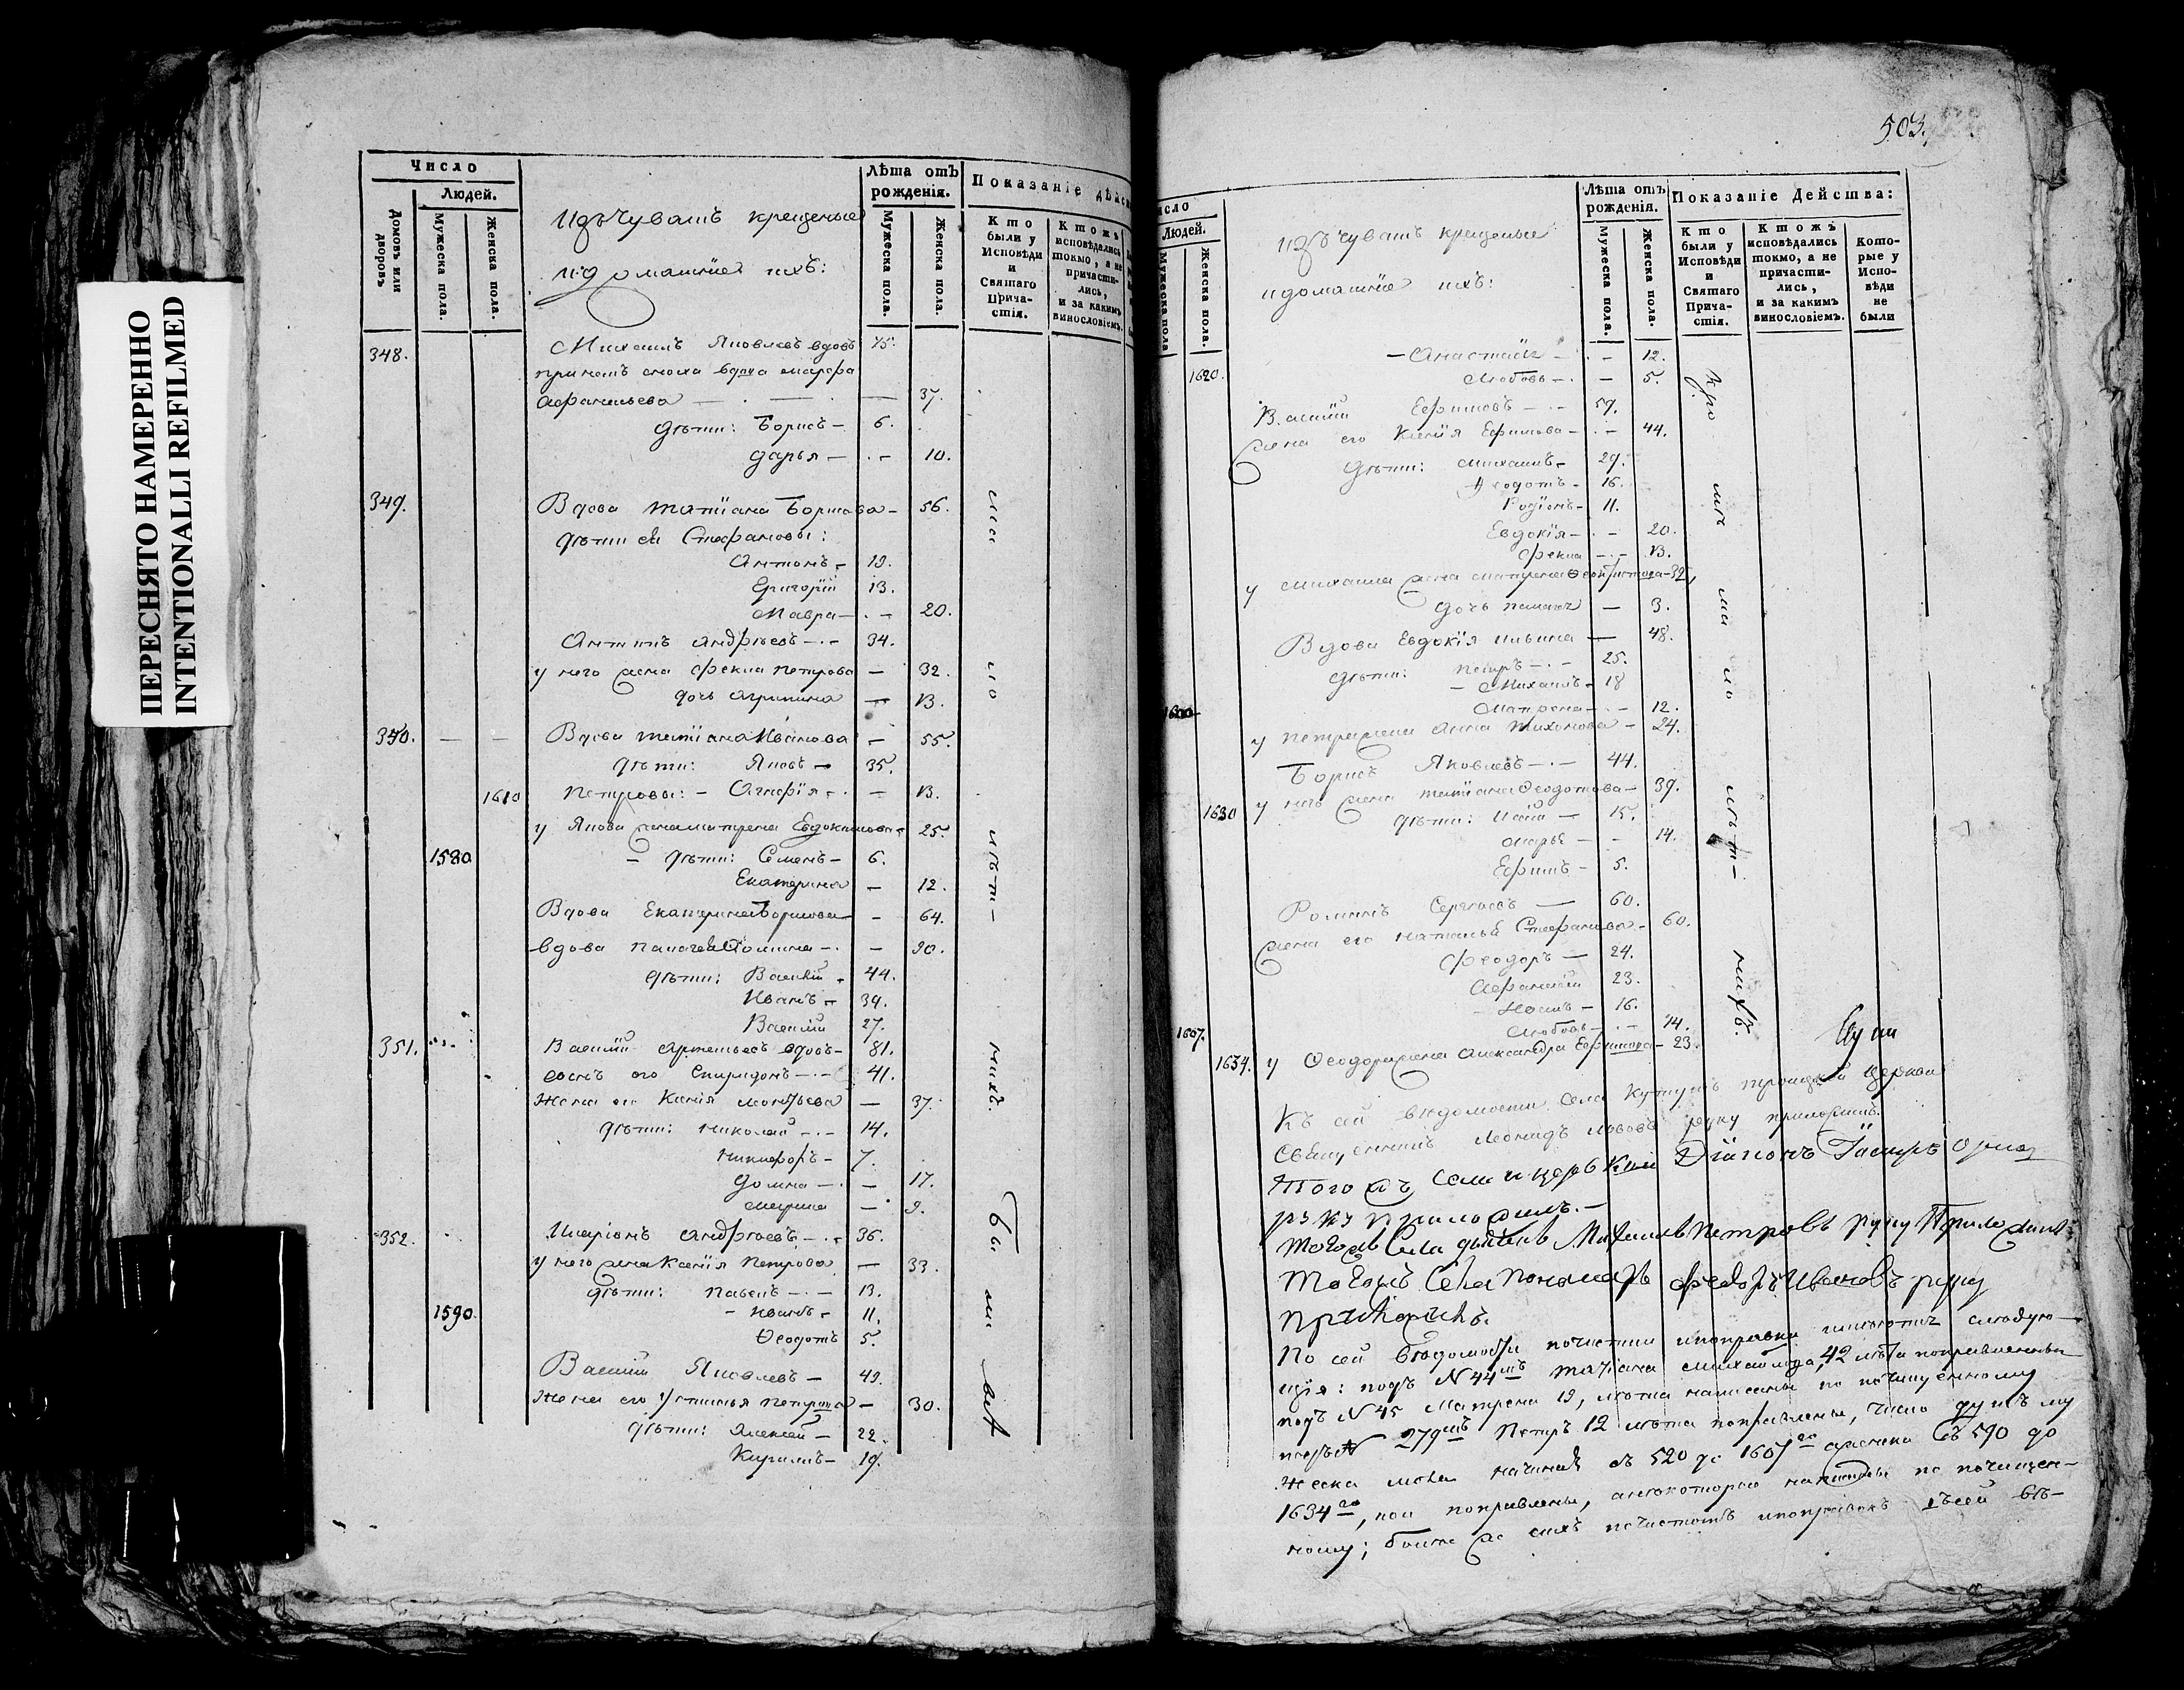 ПЕРЕСНЯТО НАМЕРЕННО
INTENTIONALLI REFILMED
Число
Людей.
Домовъ или дворовъ
Мужеска пола.
Женска пола.
Изъ Чувашъ крещеные
и домашніе ихъ:
Лѣта отъ рожденія.
Мужеска пола.
Женска пола.
Показаніе
Кто были у Исповѣди и Святаго Причастія.
Ктожъ исповѣдались токмо, а не причастились, и за какимъ винословіемъ.
348. Михаилъ Яковлевъ вдовъ 75.
при немъ сноха вдова Марфа
Афанасьева — 37.
дѣти: Борисъ — 6.
Дарья — 10.
349. Вдова Татіана Борисова — 56.
дѣти ея Стефановы:
Антонъ — 19.
Григорій 13.
Мавра — 20.
Антипъ Андреевъ — 34.
у него жена Фекла Петрова — 32.
дочь Агрипина — 13.
350. Вдова Татіана Иванова — 55.
дѣти: Яковъ — 35.
1610 Петровы: — Агафія — 13.
у Якова жена Матрена Евдокимова 25.
1580 — дѣти: Семенъ — 6.
Екатерина — 12.
Вдова Екатерина Борисова — 64.
вдова Палагея — 90.
дѣти: Василій 44.
Иванъ — 39.
Василій 27.
351. Василій Артемьевъ вдовъ — 81.
сынъ его Спиридонъ — 41.
Жена его Ксенія — 37.
дѣти: Николай — 14.
Никифоръ — 7.
Домна — 17.
Марина — 9.
352. Иларіонъ Андреевъ — 36.
у него жена Ксенія Петрова — 33.
дѣти: Павелъ — 13.
1590. — Иванъ — 11.
Ѳеодотъ 5.
Василій Яковлевъ — 49.
Жена его Устинья Петрова — 30.
дѣти: Алексѣй — 22.
Кирилъ — 19.
503.
Число
Людей.
Мужеска пола
Женска пола.
Изъ Чувашъ крещеные
и домашніе ихъ:
Лѣта отъ рожденія.
Мужеска пола.
Женска пола.
Показаніе Действа:
Кто были у Исповѣди и Святаго Причастія.
Ктожъ исповѣдались токмо, а не причастились, и за какимъ винословіемъ.
Которые у Исповѣди не были
— Анастасія — 12.
1620. Любовь — 5.
Василій Ефимовъ — 57.
жена его Ксенія Ефимова — 44.
дѣти: Михаилъ — 29.
Ѳеодотъ — 16.
Родіонъ — 11.
Евдокія — 20.
Фекла — 13.
у Михаила жена Матрена 32.
дочь Палагея — 3.
Вдова Евдокія Ильина — 48.
дѣти: Петръ — 25.
— Михаилъ — 18
1600 Матрена — 12.
у Петра жена Анна Тихонова — 24.
Борисъ Яковлевъ — 44.
1630 у него жена Татіана Ѳеодотова — 39.
дѣти: — 15.
Марья — 14.
Ефимъ — 5.
Романъ Сергеевъ — 60.
жена его Наталья Стефанова — 60.
Феодоръ — 24.
Афанасій 23.
— 16.
1607. Любовь — 14.
1634. у Ѳеодора жена Александра Ефимова — 23.
Къ сей вѣдомости села Троицкой церкви
Священникъ Леонидъ Львовъ руку приложилъ.
Того жъ села и церькви Діаконъ
руку приложилъ. —
Тогожъ Села дьячекъ Михаилъ Петровъ руку Приложилъ
Тогожъ Села Пономарь Федоръ Ивановъ руку
приложилъ.
По сей вѣдомости почистки и поправки имѣются слѣдую-
щія: подъ N 44мъ Татіана Михайлова, 42 лѣта поправлены
подъ N 45 Матрена 19, лѣта написаны по почищенному
подъ N 279мъ Петръ 12 лѣта поправлены, число душъ му
жеска пола начиная съ 520 до 1607го а женска съ 590 до
1634го, кои поправлены, а некоторые написаны по почищен-
ному; более же сихъ почистокъ и поправокъ въ сей вѣ-